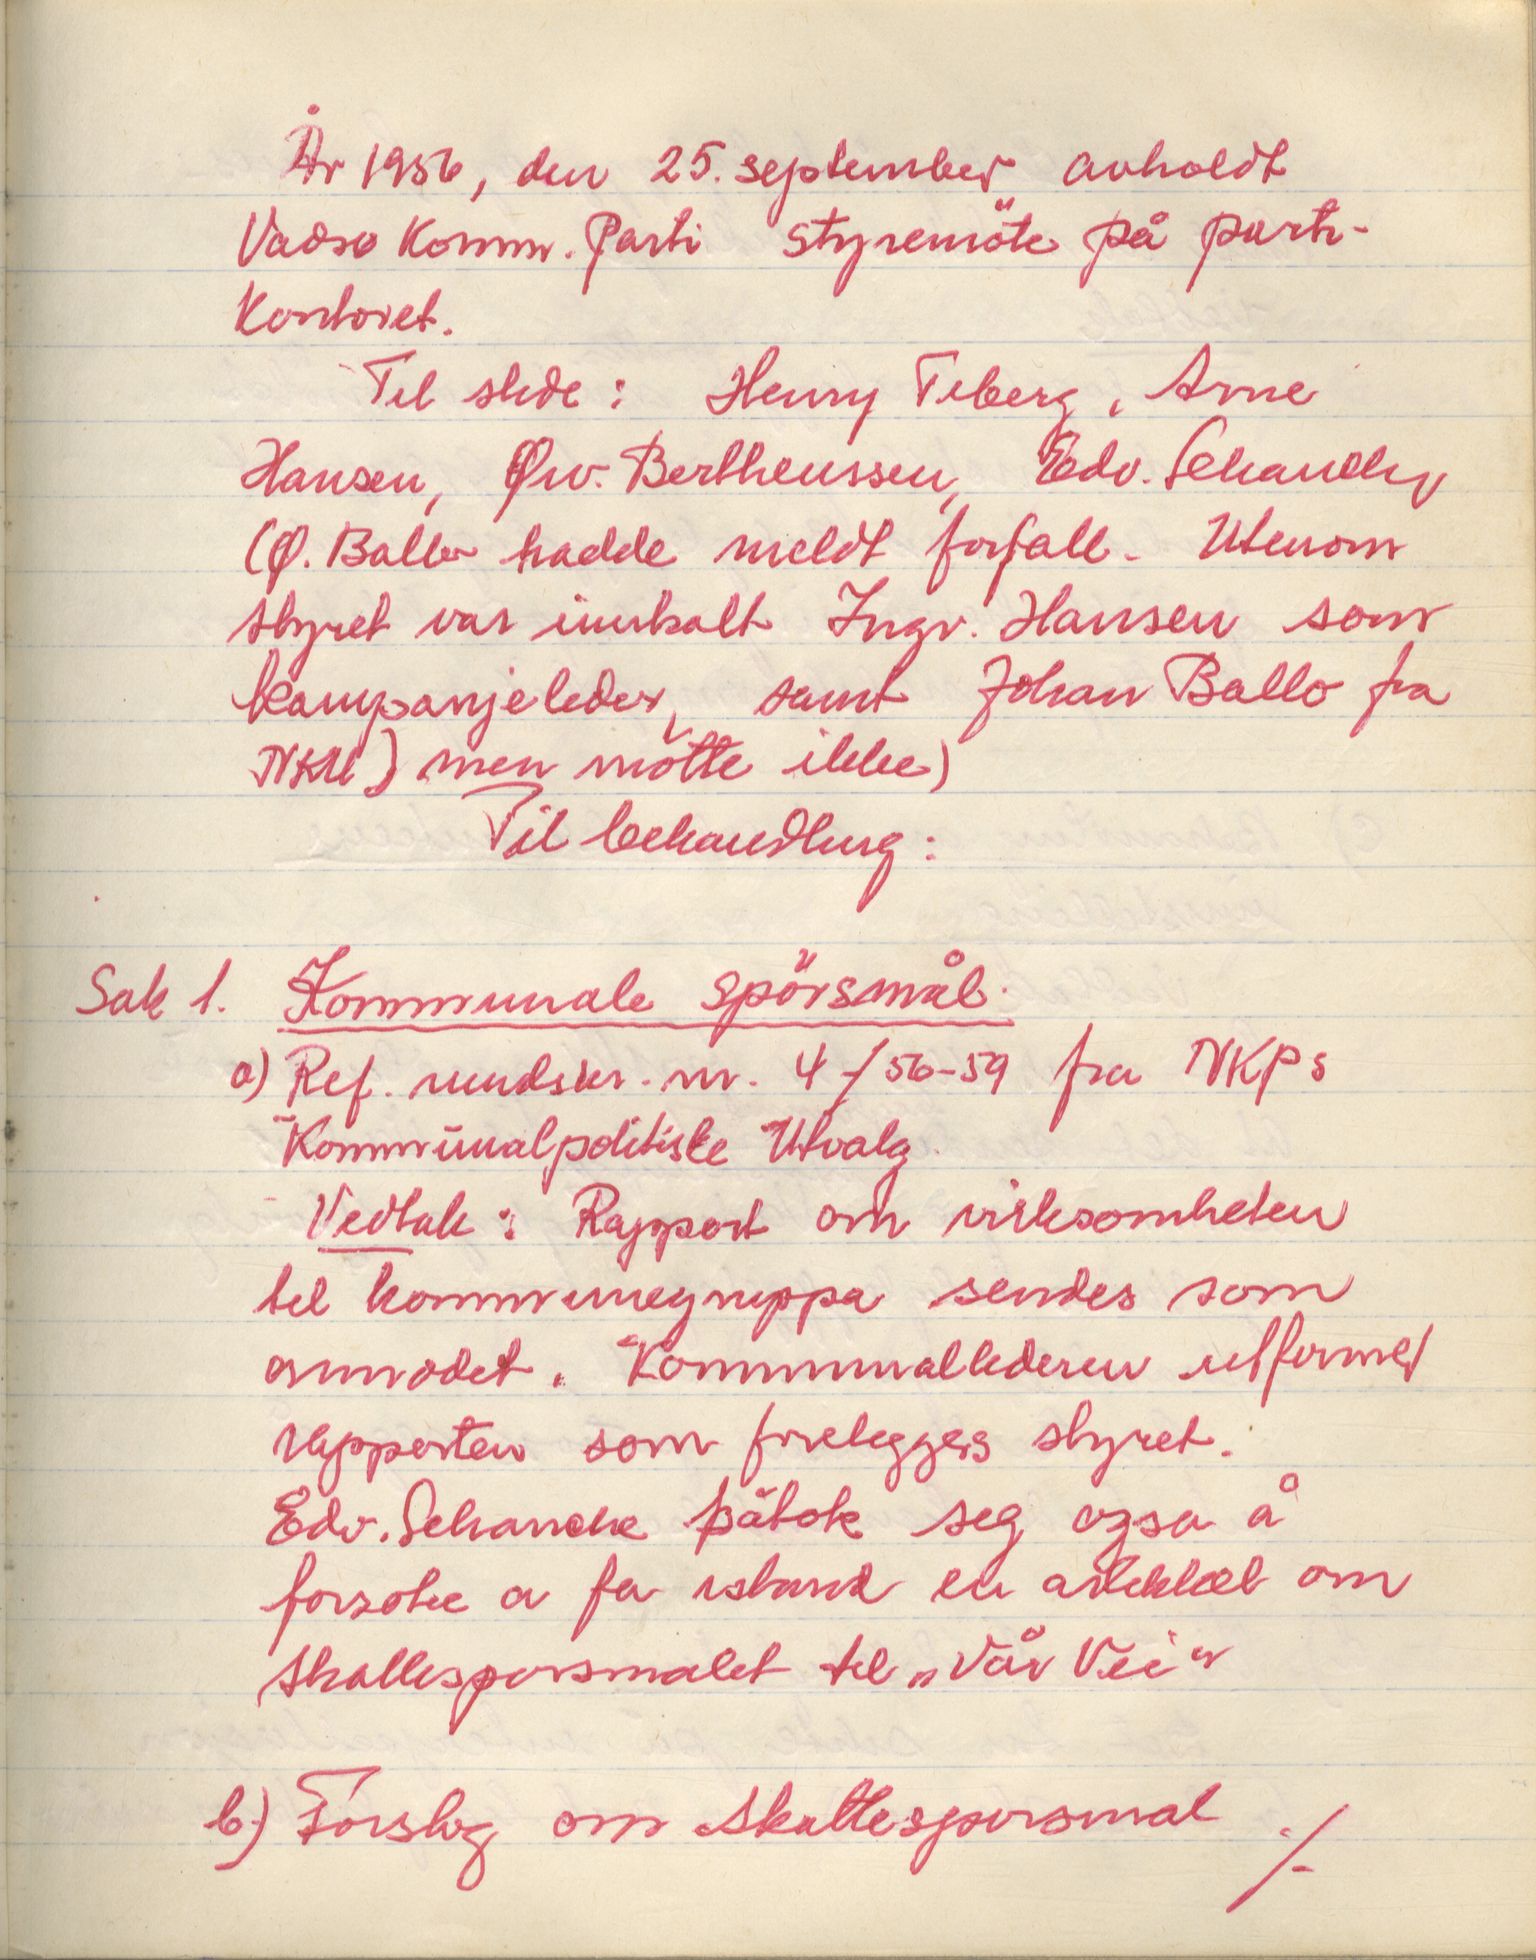 År 1956, den 25. september avholdt
Vadsø Komm. Parti styremöte på parti-
kontoret.
Til stede: Henry Tiberg, Arne
Hansen, Øiv. Bertheussen, Edv. Schancke
(Ø. Ballo hadde meldt forfall. Utenom
styret var innkalt Ingv. Hansen som
kampanjeleder, samt Johan Ballo fra
NKU) men mötte ikke)
Til behandling:
Sak 1. Kommunale spörsmål.
a) Ref. rundskr. nr. 4/56-59 fra NKPs
Kommunalpolitiske Utvalg.
Vedtak: Rapport om virksomheten
til kommunegruppa sendes som
anmodet. Kommunallederen utformer
rapporten som forelegges styret.
Edv. Schancke påtok seg ogsa å
forsøke a fa istand en artikkel om
skattesporsmalet til "Vår Vei"
b) Forslag om skattesporsmal ./.